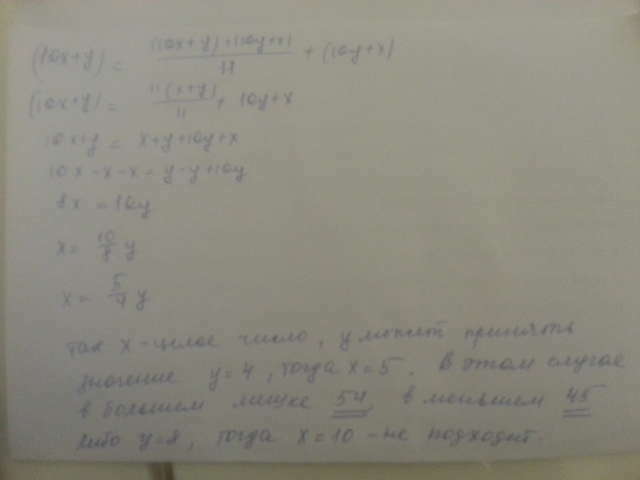 (10x+y) = ((10x+y)+(10y+x))/11 + (10y+x)
(10x+y) = 11(x+y)/11 + 10y+x
10x+y = x+y+10y+x
10x-x-x = y-y+10y
8x = 10y
x = 10/8 y
x = 5/4 y
так x - целое число, y может принять
значение y=4, тогда x=5. В этом случае
в большем ящике 54, в меньшем 45
либо y=8, тогда x=10 - не подходит.